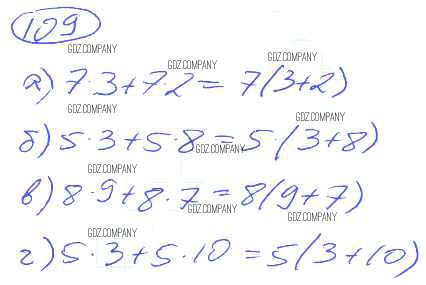 109
GDZ.COMPANY GDZ.COMPANY GDZ.COMPANY
а) 7·3+7·2= 7(3+2)
GDZ.COMPANY GDZ.COMPANY
б) 5·3+5·8=5·(3+8)
GDZ.COMPANY GDZ.COMPANY
в) 8·9+8·7=8(9+7)
GDZ.COMPANY GDZ.COMPANY GDZ.COMPANY
г) 5·3+5·10=5(3+10)